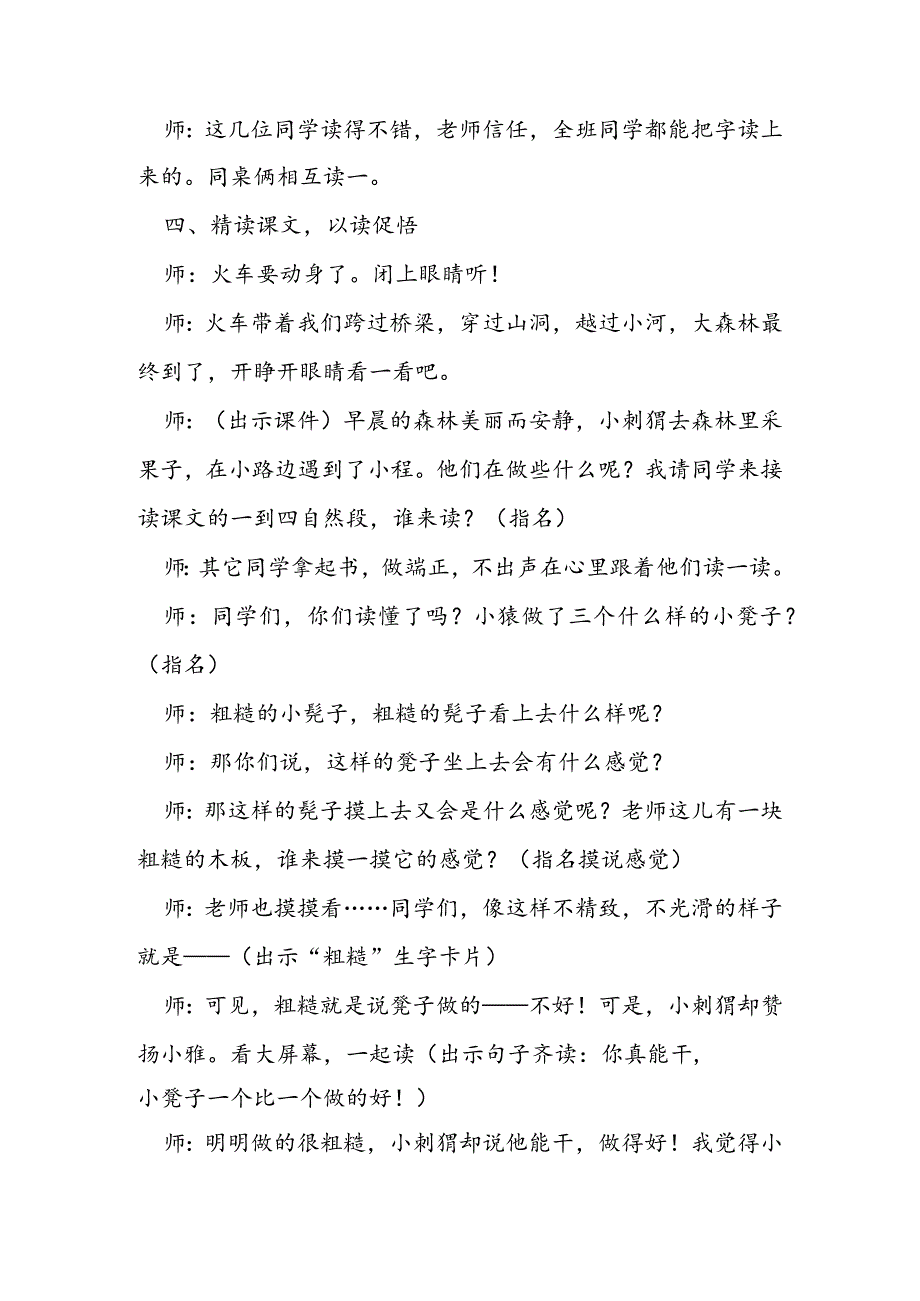 师：这几位同学读得不错，老师信任，全班同学都能把字读上
来的。同桌俩相互读一。
四、精读课文，以读促悟
师：火车要动身了。闭上眼睛听！
师：火车带着我们跨过桥梁，穿过山洞，越过小河，大森林最
终到了，开睁开眼睛看一看吧。
师：（出示课件）早晨的森林美丽而安静，小刺猬去森林里采
果子，在小路边遇到了小程。他们在做些什么呢？我请同学来接
读课文的一到四自然段，谁来读？（指名）
师：其它同学拿起书，做端正，不出声在心里跟着他们读一读。
师：同学们，你们读懂了吗？小猿做了三个什么样的小凳子？
（指名）
师：粗糙的小髡子，粗糙的髡子看上去什么样呢？
师：那你们说，这样的凳子坐上去会有什么感觉？
师：那这样的髡子摸上去又会是什么感觉呢？老师这儿有一块
粗糙的木板，谁来摸一摸它的感觉？（指名摸说感觉）
师：老师也摸摸看……同学们，像这样不精致，不光滑的样子
就是——（出示“粗糙”生字卡片）
师：可见，粗糙就是说凳子做的——不好！可是，小刺猬却赞
扬小雅。看大屏幕，一起读（出示句子齐读：你真能干，
小凳子一个比一个做的好！）
师：明明做的很粗糙，小刺猬却说他能干，做得好！我觉得小